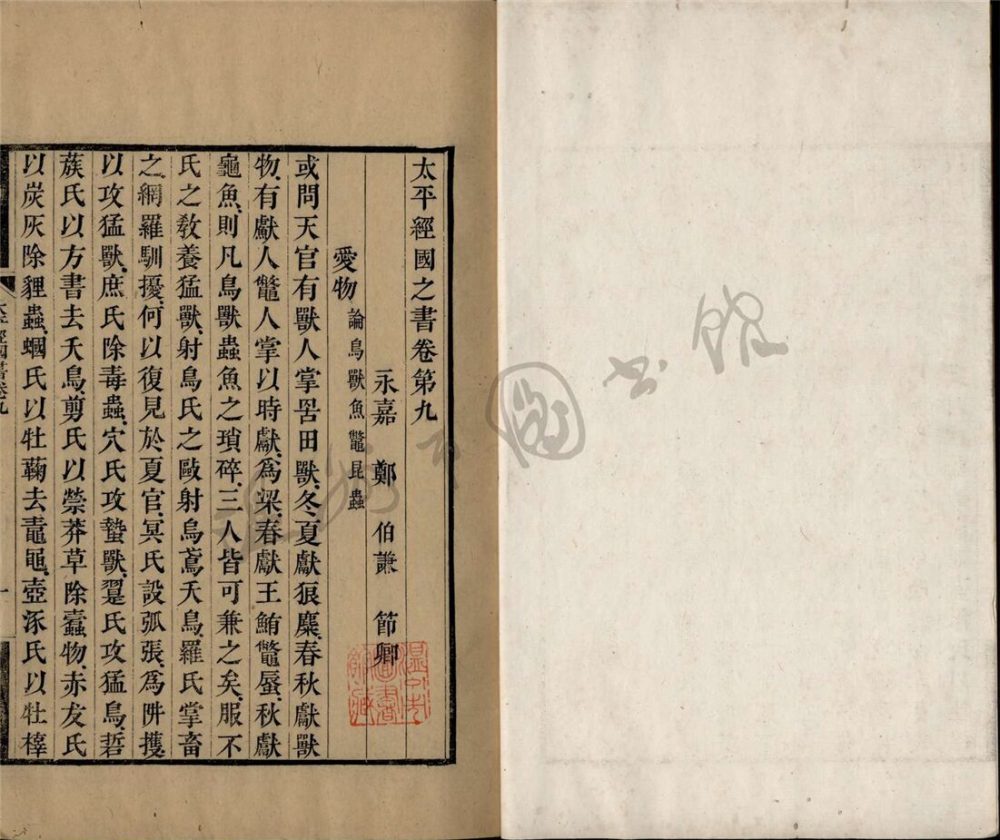 太平經國之書卷第九
永嘉 鄭 伯謙 節卿
愛物 論鳥獸魚鼈昆蟲
或問天官有獸人掌罟田獸、冬夏獻狼麋、春秋獻獸
物、有獻人鼈人掌以時獻、爲梁、春獻王鮪鼈蜃、秋獻
龜魚、則凡鳥獸蟲魚之瑣碎、三人皆可兼之矣、服不
氏之敎養猛獸、射鳥氏之毆射烏鳶夭鳥、羅氏掌畜
之網羅馴擾、何以復見於夏官、冥氏設弧張、爲阱擭、
以攻猛獸、庶氏除毒蟲、穴氏攻蟄獸、翨氏攻猛鳥、硩
蔟氏以方書去夭鳥、剪氏以禜莽草除蠧物、赤犮氏
以炭灰除貍蟲、蟈氏以牡蘜去鼃黽、壺涿氏以牡橭
太平經國書卷九
一
圖書館